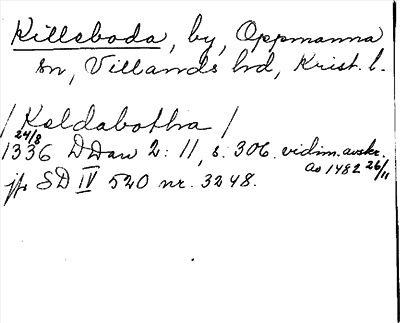 Killeboda, by, Oppmanna
sn, Villands hd, Krist. l.
/ Keldabotha /
24/8
1336 DDan 2: 11, s. 306. vidim. avskr.
ao 1482 26/11
jfr SD IV 520 nr. 3248.